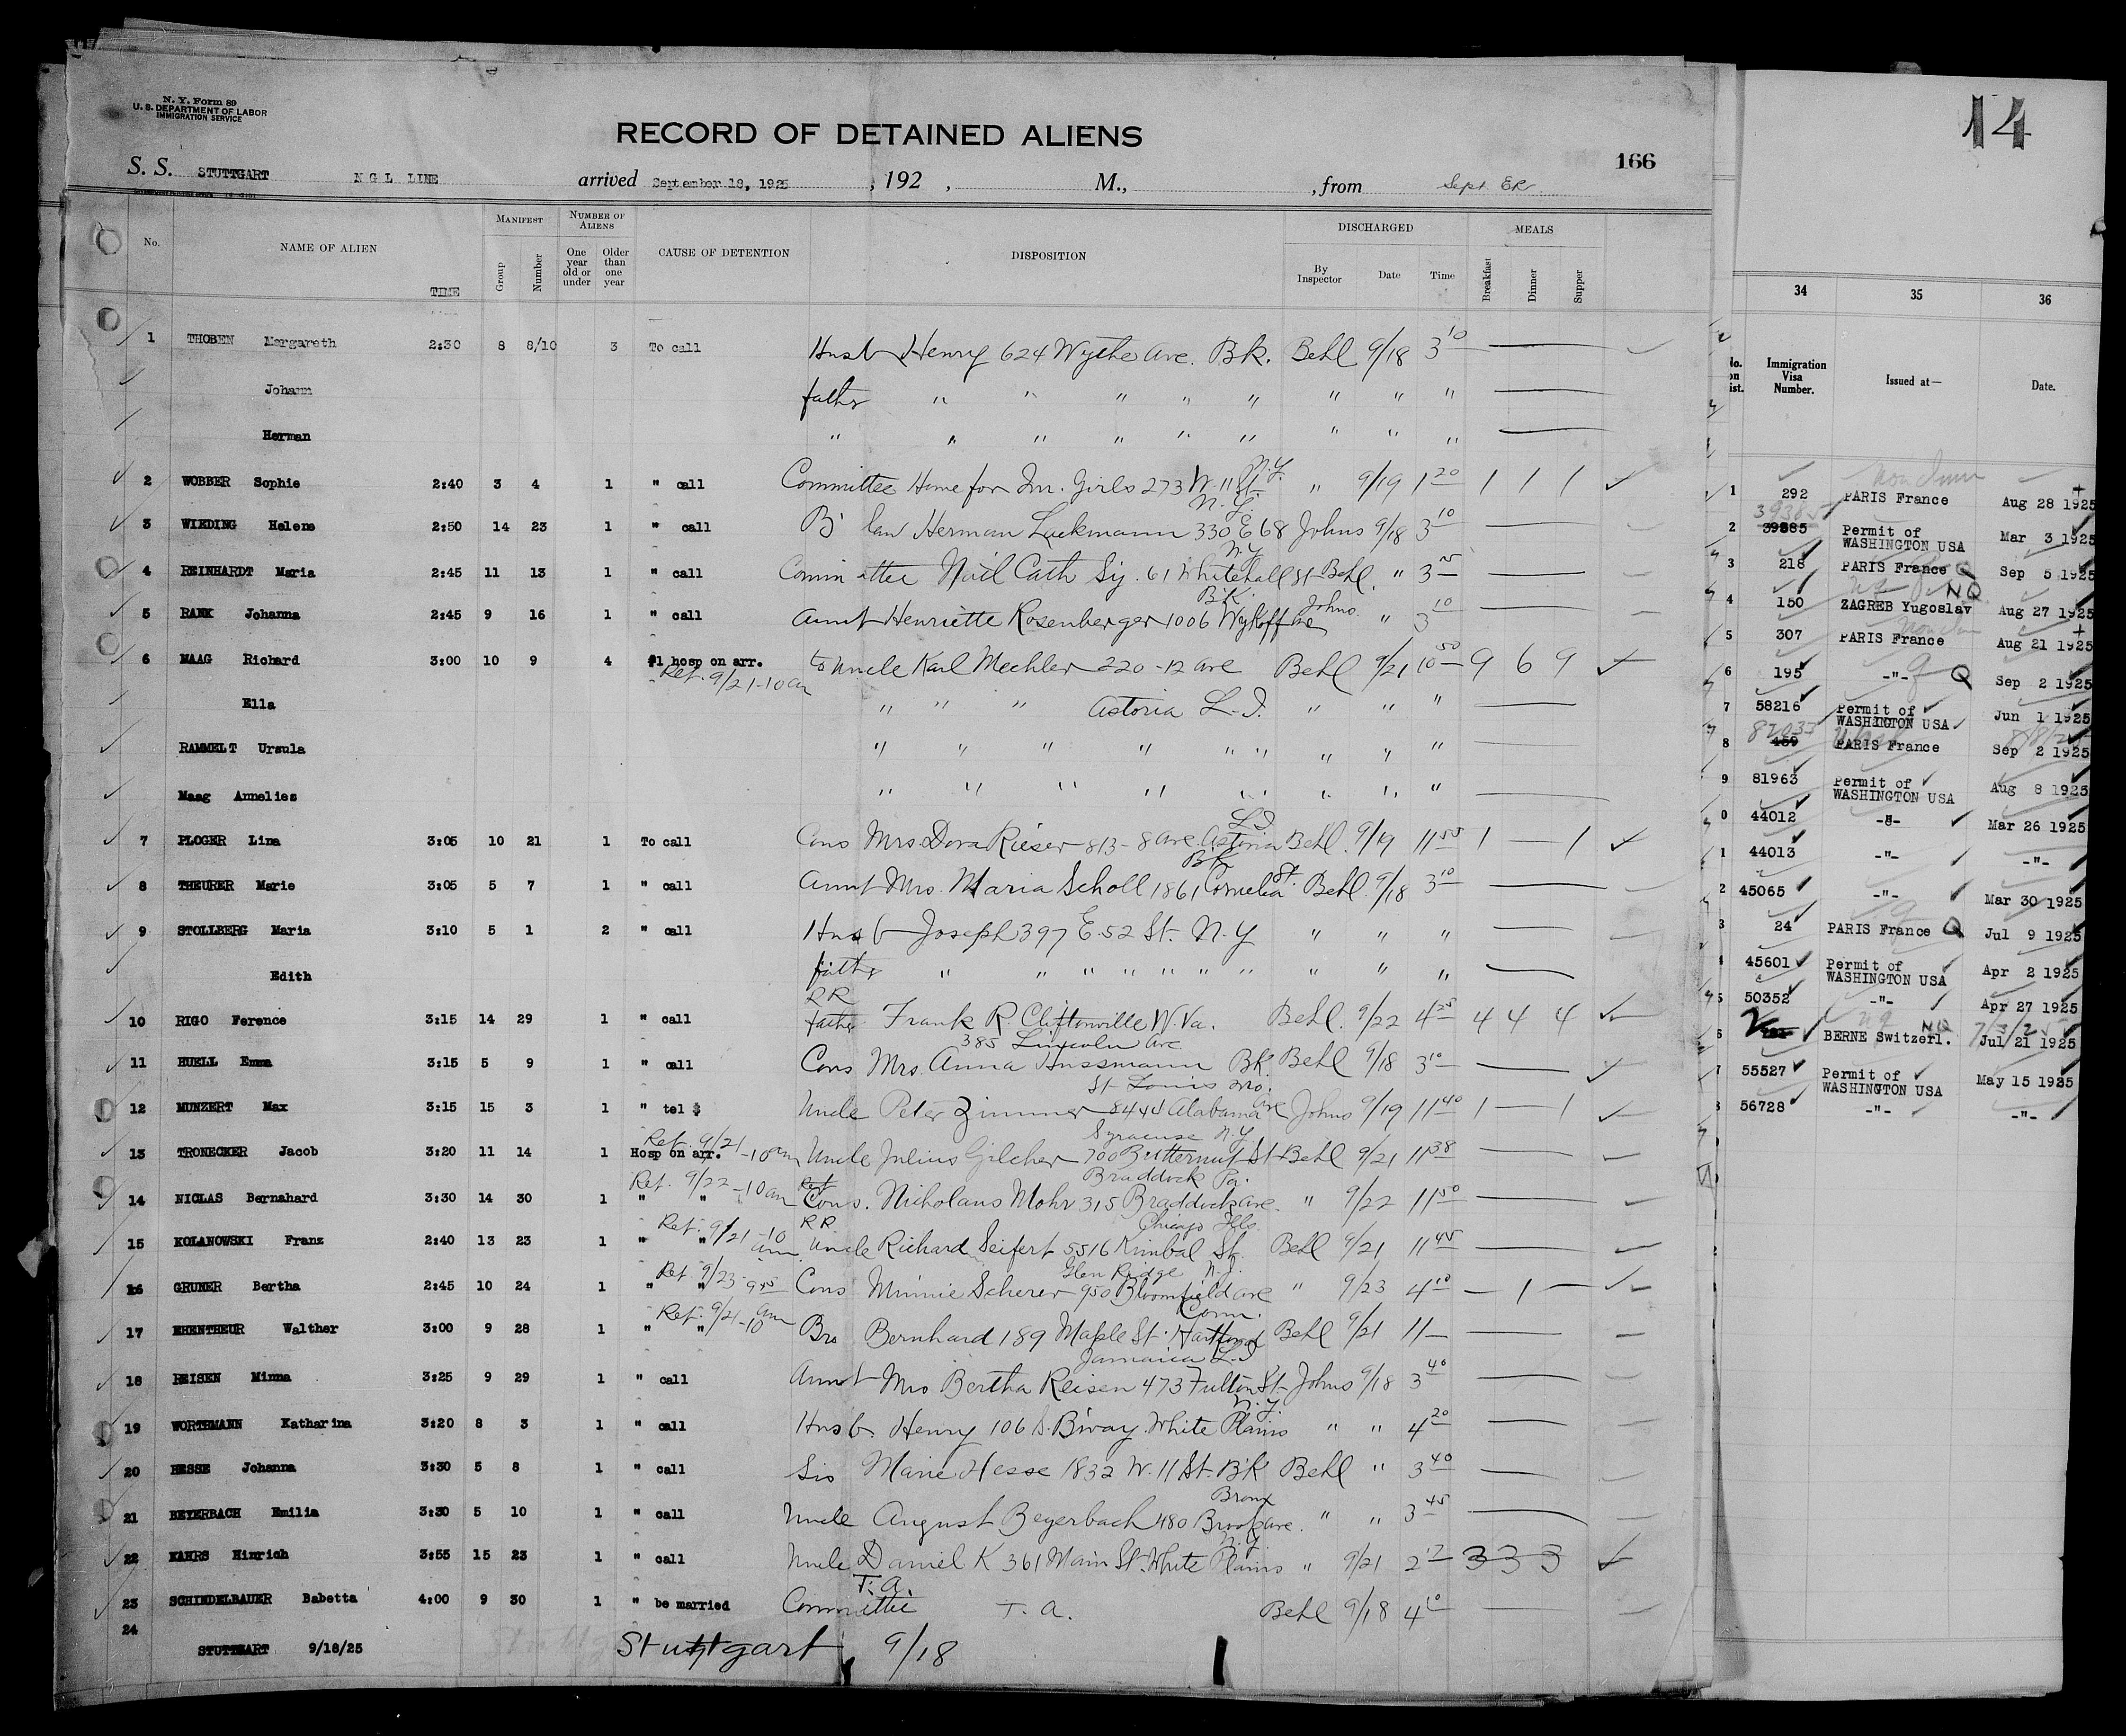 N. Y. Form 89
U. S. DEPARTMENT OF LABOR
IMMIGRATION SERVICE
RECORD OF DETAINED ALIENS
166
S. S. STUTTGART N G L LINE arrived September 18, 1925 , 192 , M., , from Sept
No. NAME OF ALIEN TIME MANIFEST Group Number NUMBER OF ALIENS One year old or under Older than one year CAUSE OF DETENTION DISPOSITION DISCHARGED By Inspector Date Time MEALS Breakfast Dinner Supper
1 THOBEN Margareth 2:30 8 8/10 3 To call Husb Henry 624 Wythe Ave. Bk. Behl 9/18 3 10
Johann father " " " " " " " "
Herman " " " " " " " " "
N.Y.
2 WOBBER Sophie 2:40 3 4 1 " call Committee Home for Im. Girls 273 W. 11 St. " 9/19 1 20 1 1 1
N.Y.
3 WIEDING Helene 2:50 14 23 1 " call B' law Herman Luckmann 330 E 68 Johns 9/18 3 10
N.Y.
4 REINHARDT Maria 2:45 11 13 1 " call Committee Nat'l Cath 61 Whitehall St Behl. " 3
B'K.
5 RANK Johanna 2:45 9 16 1 " call Aunt Henriette Rosenberger 1006 Wykoff Ave Johns " 3 10
6 MAAG Richard 3:00 10 9 4 #1 hosp on arr. to Uncle Karl Mechler 220-12 Ave Behl 9/21 10 50 9 6 9
Ret. 9/21-10 am
Ella " " " Astoria L.I. " " "
RAMMELT Ursula " " " " " " " " "
Maag Annelies " " " " " " " " "
L.I.
7 PLOGER Lina 3:05 10 21 1 To call Cons Mrs Dora Rieser 813-8 Ave. Astoria Behl. 9/19 11 55 1 — 1
B'K
8 THEURER Marie 3:05 5 7 1 " call Aunt Mrs. Maria Scholl 1861 Cornelia St. Behl. 9/18 3 10
9 STOLLBERG Maria 3:10 5 1 2 " call Husb Joseph 397 E. 52 St. N.Y " " "
Edith father " " " " " " " " " "
RR
10 RIGO Ference 3:15 14 29 1 " call father Frank R. Cliftonville W. Va. Behl. 9/22 4 25 4 4 4
385 Lincoln Ave
11 HUELL Emma 3:15 5 9 1 " call Cons Mrs. Anna Hussmann Bk. Behl 9/18 3 10
St Louis Mo.
12 MUNZERT Max 3:15 15 3 1 " tel $ Uncle Peter Zimmer Alabama Ave Johns 9/19 11 40 1 — 1
Ret. 9/21-10 am Syracuse N.Y.
13 TRONECKER Jacob 3:20 11 14 1 Hosp on arr. Uncle Julius Gilcher 700 Butternut St Behl 9/21 11 38
Ret. 9/22-10 am Braddock Pa.
14 NICLAS Bernahard 3:30 14 30 1 " " Cons. Nicholaus Mohr 315 Braddock Ave. " 9/22 11 50
Ret. 9/21-10 am RR Chicago Ills.
15 KOLANOWSKI Franz 2:40 13 23 1 " " Uncle Richard Seifert 5516 Kimbal St. Behl 9/21 11 45
Ret 9/23-9 45 Glen Ridge N.J.
16 GRUNER Bertha 2:45 10 24 1 " " Cons Minnie Scherer 950 Bloomfield Ave " 9/23 4 10 — 1 —
Ret. 9/21-10 am Conn.
17 EHENTHEUR Walther 3:00 9 28 1 " " Bro Bernhard 189 Maple St. Hartford Behl 9/21 11
Jamaica L.I
18 REISEN Minna 3:25 9 29 1 " call Aunt Mrs Bertha Reisen 473 Fulton St. Johns 9/18 3 40
N.Y
19 WORTHMANN Katharina 3:20 8 3 1 " call Husb. Henry 106 S. B'way. White Plains " " 4 20
20 HESSE Johanna 3:30 5 8 1 " call Sis Marie Hesse 1832 W. 11 St. B'k Behl " 3 40
Bronx
21 BEYERBACH Emilia 3:30 5 10 1 " call Uncle August Beyerbach 480 Brook Ave. " " 3 45
N.Y.
22 KAHRS Hinrich 3:55 15 23 1 " call Uncle Daniel K 361 Main St. White Plains " 9/21 2 3 3 3
T. A.
23 SCHINDELBAUER Babetta 4:00 9 30 1 " be married Committee T. A. Behl 9/18 4 10
24
STUTTGART 9/18/25 Stuttgart 9/18
14
34 35 36
Immigration Visa Number. Issued at— Date.
1 292 PARIS France Aug 28 1925
39385
2 39885 Permit of WASHINGTON USA Mar 3 1925
3 218 PARIS France Q Sep 5 1925
NQ
4 150 ZAGREB Yugoslav Aug 27 1925
5 307 PARIS France Aug 21 1925
6 195 -"- Q Sep 2 1925
7 58216 Permit of WASHINGTON USA Jun 1 1925
8 459 PARIS France Sep 2 1925
9 81963 Permit of WASHINGTON USA Aug 8 1925
0 44012 -"- Mar 26 1925
1 44013 -"- -"-
2 45065 -"- Mar 30 1925
3 24 PARIS France Q Jul 9 1925
45601 Permit of WASHINGTON USA Apr 2 1925
5 50352 -"- Apr 27 1925
6 BERNE Switzerl. NQ Jul 21 1925
55527 Permit of WASHINGTON USA May 15 1925
56728 -"- -"-